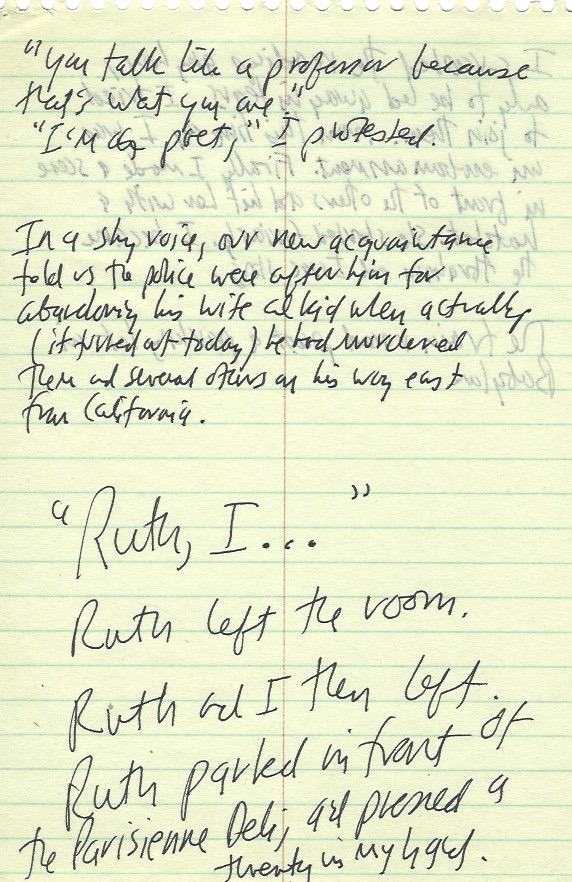 "You talk like a professor because
that's what you are."
"I'm a poet," I protested.
In a shy voice, our new acquaintance
told us the police were after him for
abandoning his wife and kid when actually
(it turned out today) he had murdered
them and several others on his way east
from California.
"Ruth, I..."
Ruth left the room.
Ruth and I then left.
Ruth parked in front of
the Parisienne Deli, and pressed a
twenty in my hand.